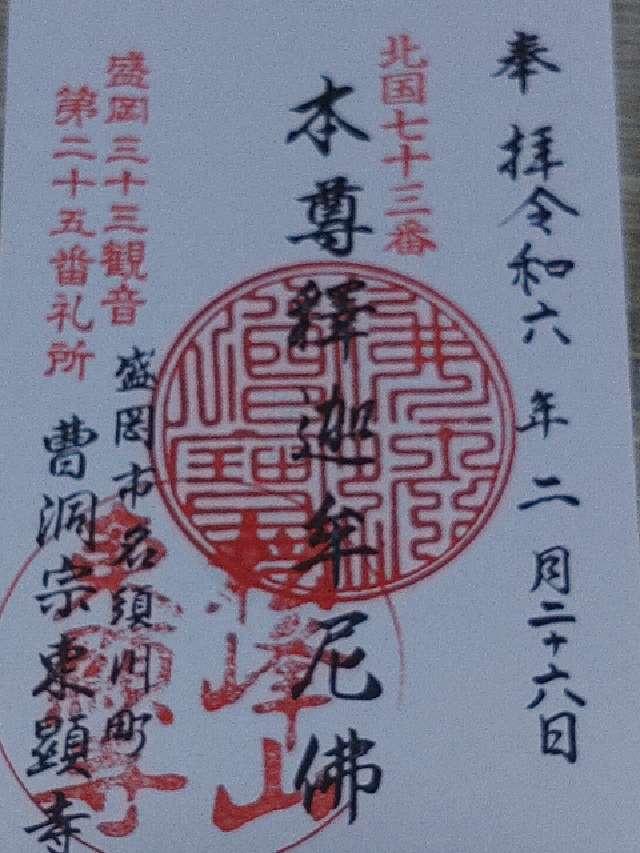 奉拝令和六年二月二十六日
北国七十三番
本尊釋迦牟尼佛
盛岡三十三観音
第二十五番礼所
盛岡市名須川町
曹洞宗東顕寺
峰山